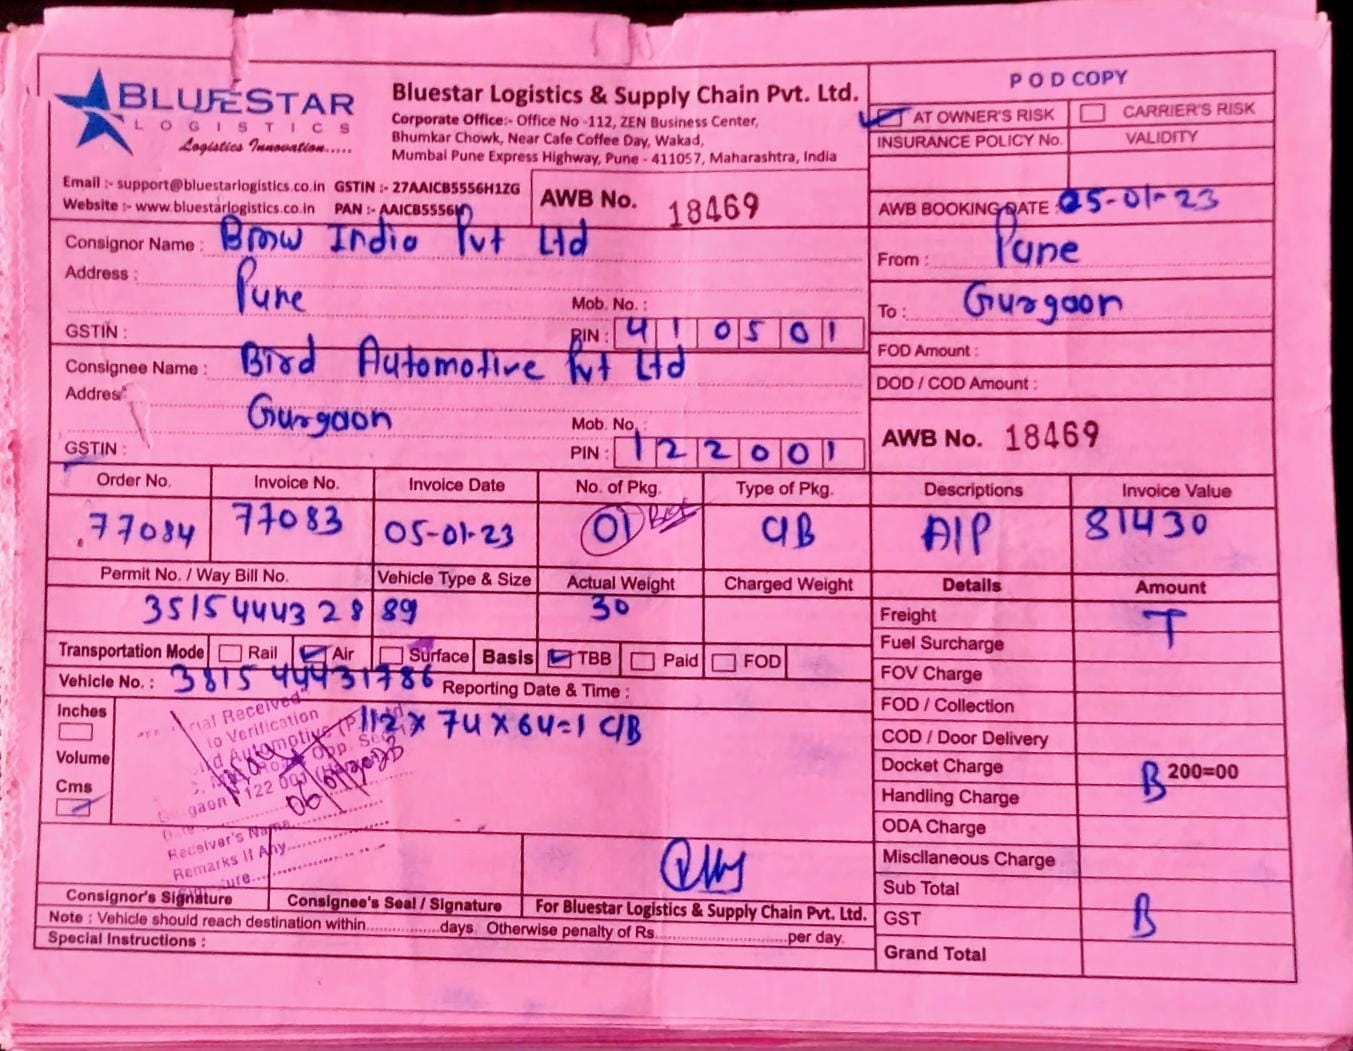 BLUESTAR
LOGISTICS
Logistics Innovation.....
Bluestar Logistics & Supply Chain Pvt. Ltd.
Corporate Office:- Office No -112, ZEN Business Center,
Bhumkar Chowk, Near Cafe Coffee Day, Wakad,
Mumbai Pune Express Highway, Pune - 411057, Maharashtra, India
Email :- support@bluestarlogistics.co.in GSTIN :- 27AAICB5556H1ZG
Website :- www.bluestarlogistics.co.in PAN :- AAICB5556H
AWB No. 18469
POD COPY
AT OWNER'S RISK CARRIER'S RISK
INSURANCE POLICY No. VALIDITY
AWB BOOKING DATE 05-01-23
Consignor Name : Bmw India Pvt Ltd
Address :
Pune
Mob. No. :
GSTIN : PIN : 410501
From : Pune
To : Gurgaon
Consignee Name : Bird Automotive Pvt Ltd
Address
Gurgaon
Mob. No.
GSTIN : PIN : 122001
FOD Amount :
DOD / COD Amount :
AWB No. 18469
Order No. Invoice No. Invoice Date No. of Pkg. Type of Pkg. Descriptions Invoice Value
77084 77083 05-01-23 01 Box C/B AIP 81430
Permit No. / Way Bill No. Vehicle Type & Size Actual Weight Charged Weight Details Amount
3515444328 89 30
Freight T
Fuel Surcharge
FOV Charge
FOD / Collection
COD / Door Delivery
Docket Charge B 200=00
Handling Charge
ODA Charge
Miscllaneous Charge
Sub Total
GST B
Grand Total
Transportation Mode Rail Air Surface Basis TBB Paid FOD
Vehicle No. : 381544431786 Reporting Date & Time :
Inches
Volume
Cms
112 x 74 x 64=1 C/B
Received
to Verification
Automotive
Opp.
gaon 122 001
06/01/2023
Receiver's Name
Remarks If Any
Consignor's Signature Consignee's Seal / Signature For Bluestar Logistics & Supply Chain Pvt. Ltd.
Note : Vehicle should reach destination within................days. Otherwise penalty of Rs..............................per day.
Special Instructions :